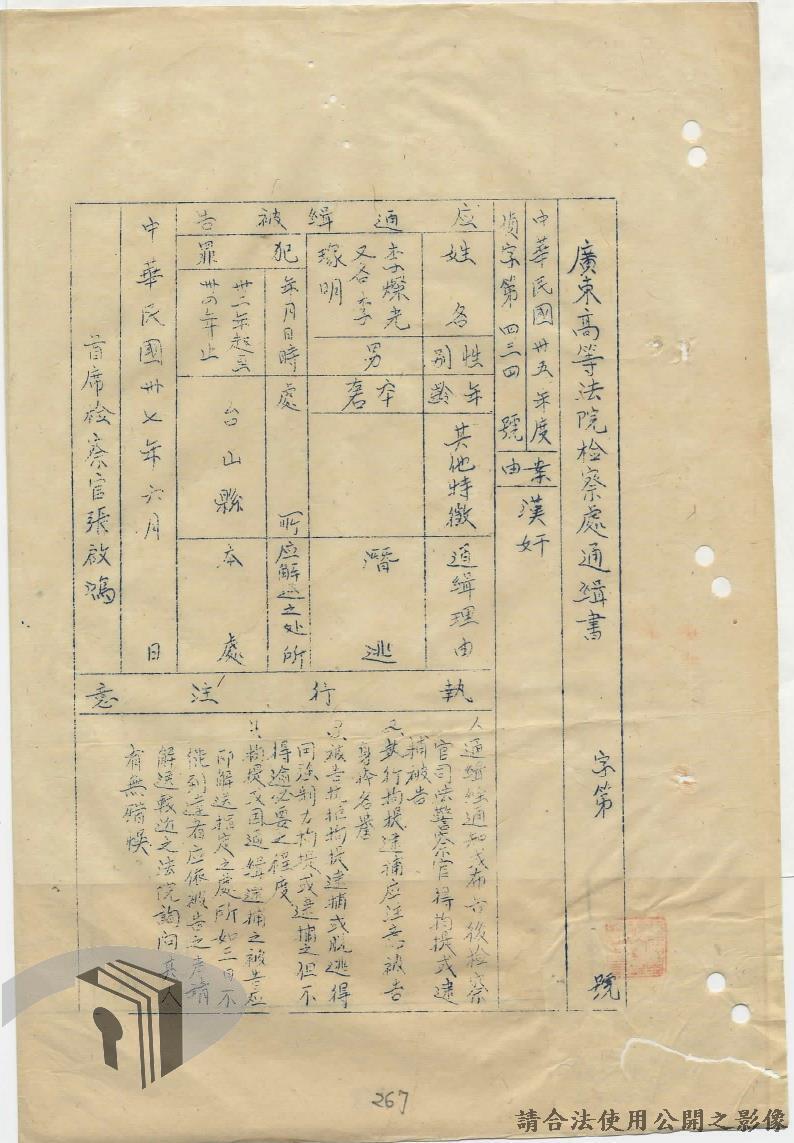 廣東高等法院檢察處通緝書 字第 號
中華民國卅五年度
偵字第四三四號
案由
漢奸
应通緝被告
姓名
性別
年齡
其他特徵
通緝理由
李燦光
又名李
琢明
男
潛逃
犯罪
年月日時
處所
应解送之处所
卅二年起至
卅四年止
台山縣
本處
中華民國卅七年六月 日
首席检察官張啟鴻
執行注意
通緝經通知或布告後检察
官司法警察官得拘提或逮
捕被告
執行拘提逮捕应注意被告
身体名譽
被告抗拒拘提逮捕或脱逃得
用强制力拘提或逮捕之但不
得逾必要之程度
拘提及因通緝逮捕之被告应
即解送指定之處所如三日不
能到達者应依被告之声請
解送較近之法院詢问其人
有無错悮
267
請合法使用公開之影像